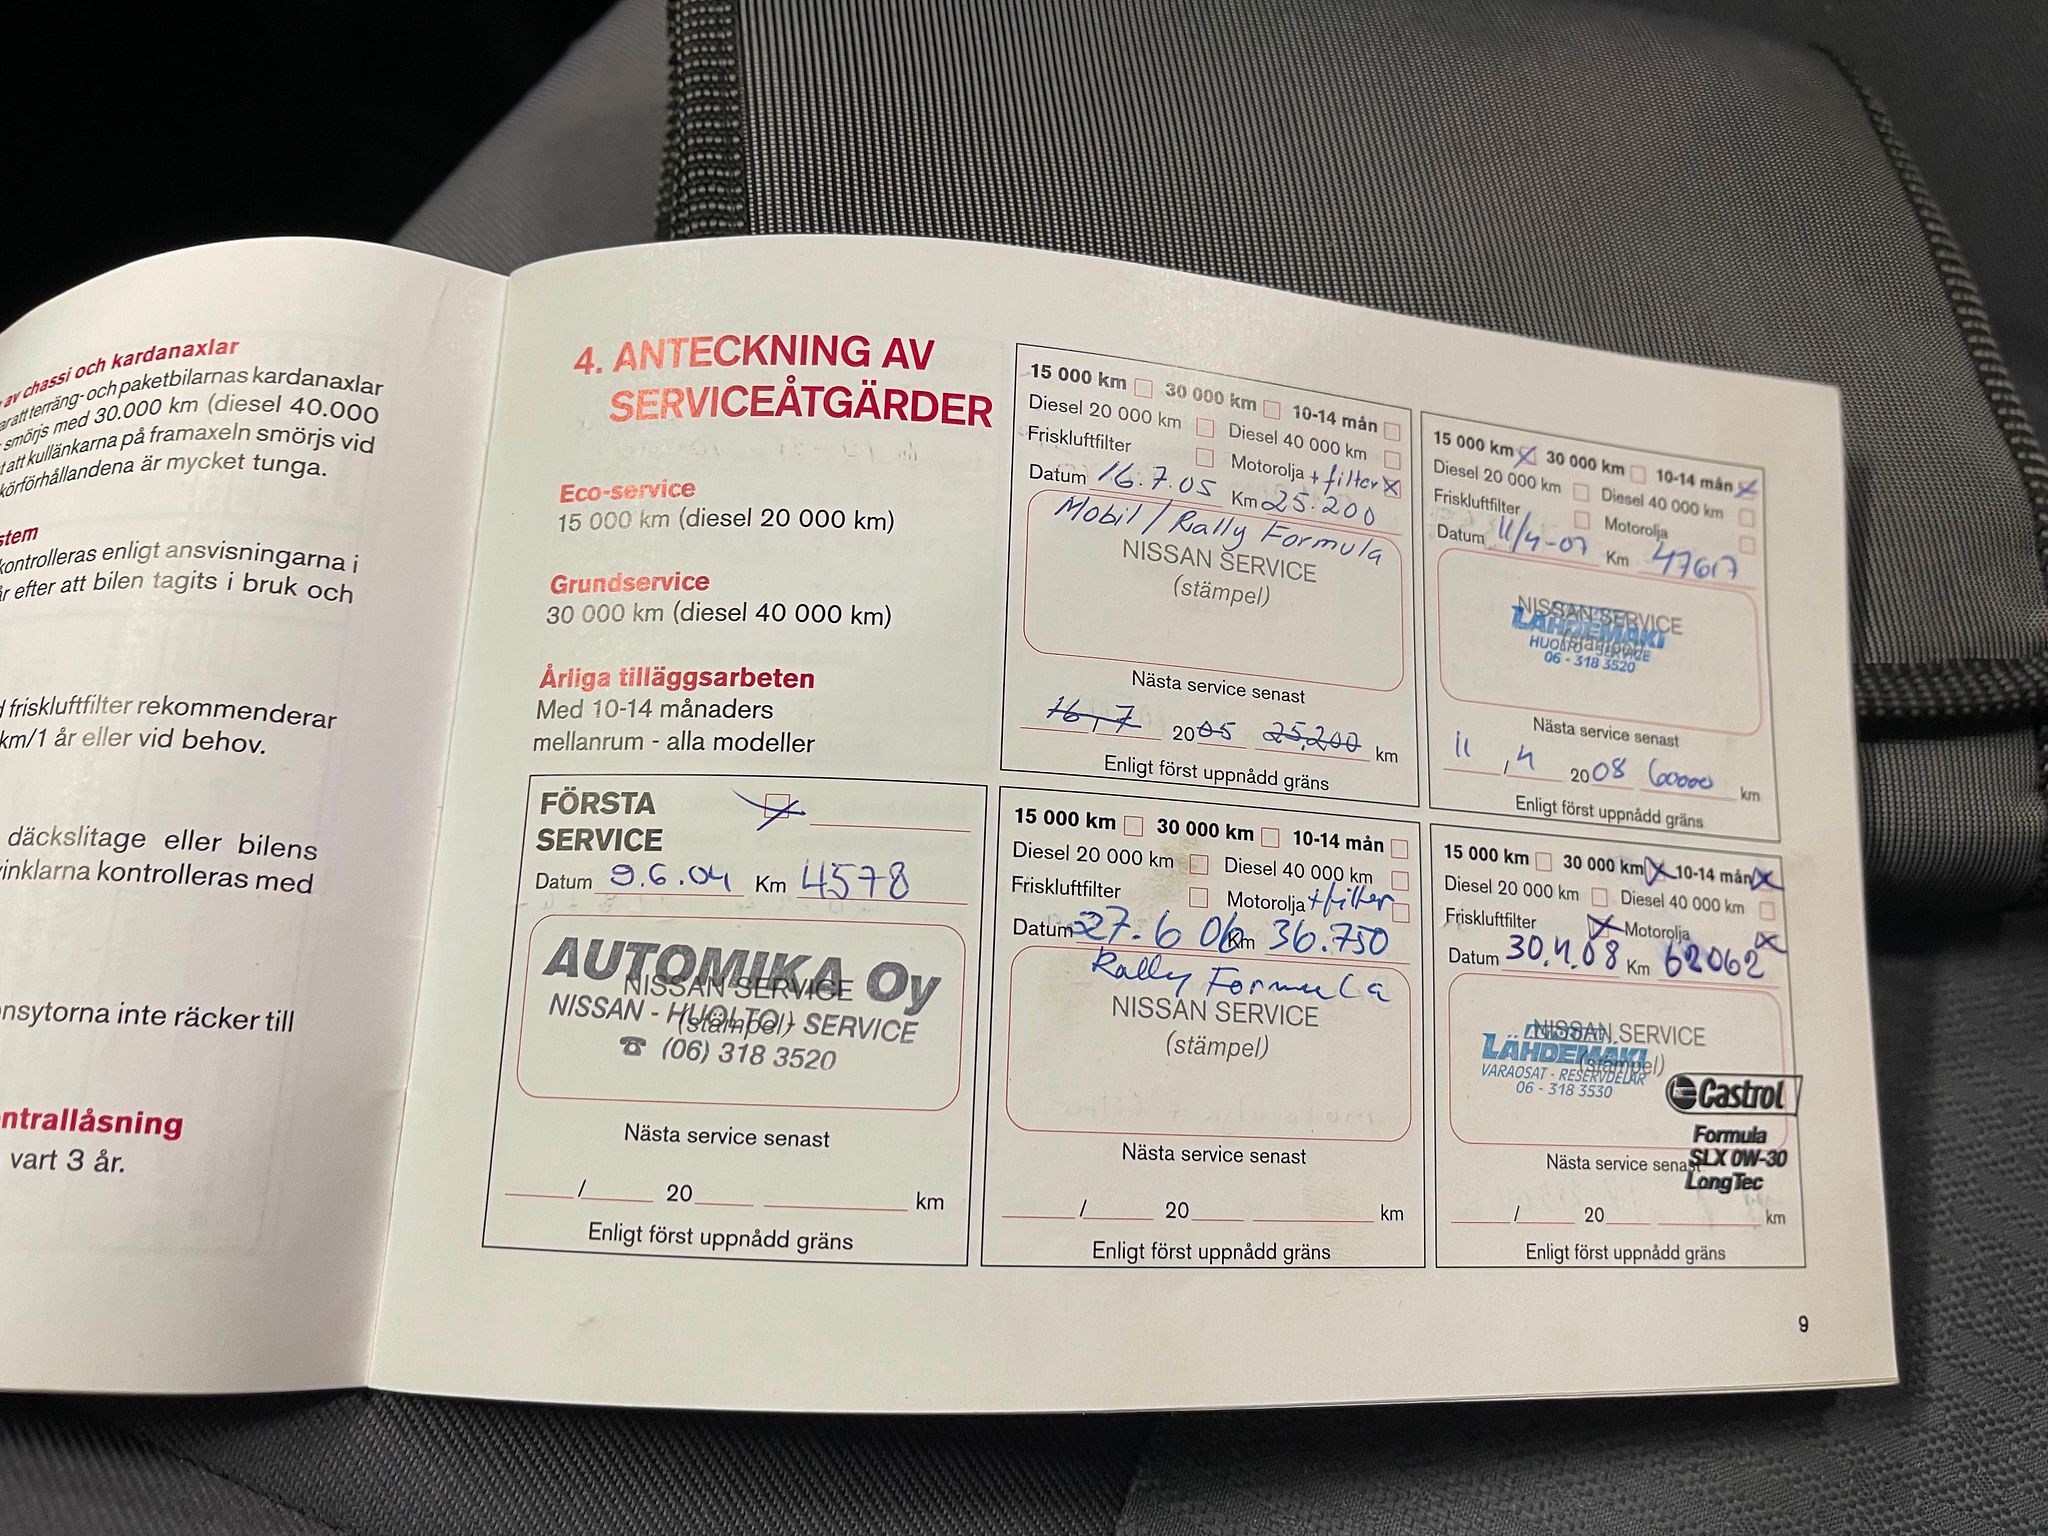 av chassi och kardanaxlar
att terräng- och paketbilarnas kardanaxlar
smörjs med 30.000 km (diesel 40.000
att kullänkarna på framaxeln smörjs vid
körförhållandena är mycket tunga.
kontrolleras enligt ansvisningarna i
efter att bilen tagits i bruk och
friskluftfilter rekommenderar
km/1 år eller vid behov.
däckslitage eller bilens
kontrolleras med
inte räcker till
vart 3 år.
4. ANTECKNING AV
SERVICEÅTGÄRDER
Eco-service
15 000 km (diesel 20 000 km)
Grundservice
30 000 km (diesel 40 000 km)
Årliga tilläggsarbeten
Med 10-14 månaders
mellanrum - alla modeller
FÖRSTA
SERVICE
Datum 9.6.04 Km 4578
AUTOMIKA Oy
NISSAN SERVICE
NISSAN - HUOLTO - SERVICE
(stämpel)
☎ (06) 318 3520
Nästa service senast
/ 20 km
Enligt först uppnådd gräns
15 000 km 30 000 km 10-14 mån
Diesel 20 000 km Diesel 40 000 km
Friskluftfilter Motorolja + filter X
Datum 16.7.05 Km 25.200
Mobil / Rally Formula
NISSAN SERVICE
(stämpel)
Nästa service senast
16, 7 2005 25.200 km
Enligt först uppnådd gräns
15 000 km 30 000 km 10-14 mån
Diesel 20 000 km Diesel 40 000 km
Friskluftfilter Motorolja + filter
Datum 27.6 06 Km 36.750
Rally Formula
NISSAN SERVICE
(stämpel)
Nästa service senast
/ 20 km
Enligt först uppnådd gräns
15 000 km X 30 000 km 10-14 mån X
Diesel 20 000 km Diesel 40 000 km
Friskluftfilter Motorolja
Datum 11/4-07 Km 47617
NISSAN SERVICE
LÄHDEMÄKI
(stämpel)
HUOLTO - SERVICE
06 - 318 3520
Nästa service senast
11 / 4 2008 60000 km
Enligt först uppnådd gräns
15 000 km 30 000 km X 10-14 mån X
Diesel 20 000 km Diesel 40 000 km
Friskluftfilter X Motorolja X
Datum 30.4.08 Km 62062
NISSAN SERVICE
LÄHDEMÄKI
(stämpel)
VARAOSAT - RESERVDELAR
06 - 318 3530
Castrol
Formula
SLX 0W-30
LongTec
Nästa service senast
/ 20 km
Enligt först uppnådd gräns
9